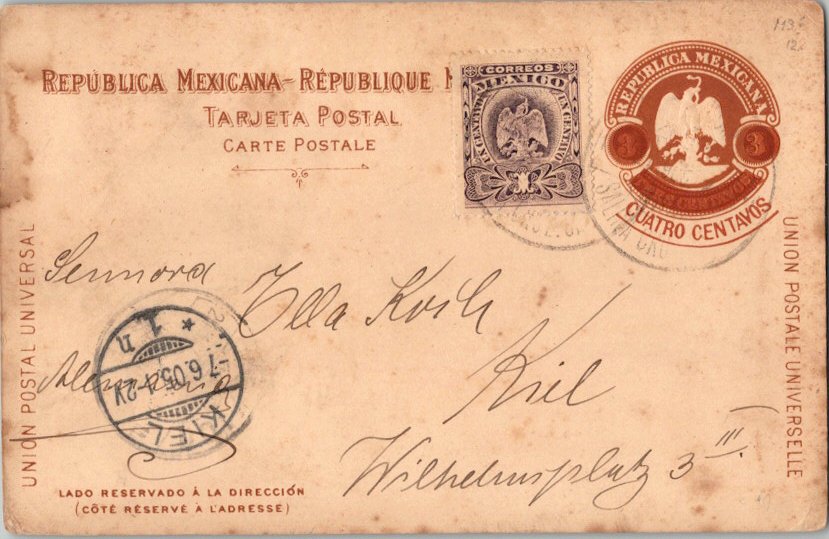 113.-
12.-
REPÚBLICA MEXICANA - RÉPUBLIQUE M
TARJETA POSTAL
CARTE POSTALE
CORREOS
MEXICO
UN CENTAVO UN CENTAVO
1
REPUBLICA MEXICANA
3 3
TRES CENTAVOS
CUATRO CENTAVOS
SALINA CRU
UNION POSTAL UNIVERSAL
UNION POSTALE UNIVERSELLE
Sennora Ella Koch
Alemania
Kiel
Wilhelmsplatz 3 III.
KIEL
7.6.05.1-2V
* 1 n
LADO RESERVADO Á LA DIRECCIÓN
(CÔTÉ RÉSERVÉ A L'ADRESSE)